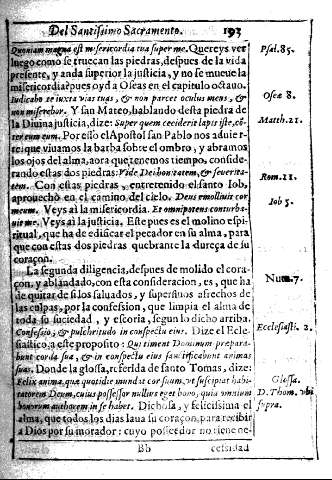 Del Santissimo Sacramento. 193
Quoniam magna est misericordia tua super me. Quereys ver
Psal. 85.
luego como se truecan las piedras, despues de la vida
presente, y anda superior la justicia, y no se mueve la
misericordia? pues oyd a Oseas en el capitulo octavo.
Iudicabo te iuxta vias tuas, & non parcet oculus meus, &
Osee 8.
non miserebor. Y san Mateo, hablando desta piedra de
Matth. 21.
la Divina justicia, dize: Super quem ceciderit lapis iste, cõ-
teret eum. Por esso el Apostol san Pablo nos advier-
te: que vivamos la barba sobre el ombro, y abramos
los ojos del alma, aora que tenemos tiempo, conside-
rando estas dos piedras: Vide Dei bonitatem, & severita-
Rom. 11.
tem. Con estas piedras, entretenido el santo Iob,
aprovechò en el camino del cielo. Deus emollivit cor
Iob 5.
meum. Veys aì la misericordia. Et omnipotens conturba-
vit me. Veys aì la justicia. Este pues es el molino espi-
ritual, que ha de edificar el pecador en su alma, para
que con estas dos piedras quebrante la dureça de su
coraçon.
La segunda diligencia, despues de molido el cora-
çon, y ablandado, con esta consideracion, es, que ha
Num. 7.
de quitar los salvados, y superfluos afrechos de
las culpas, por la confession, que limpia el alma de
toda su suciedad, y escoria, segun lo dicho arriba.
Confessio, & pulchritudo in conspectu eius. Dize el Ecle-
Ecclesiasti. 2.
siastico, a este proposito: Qui timent Dominum prepara-
bunt corda sua, & in conspectu eius sanctificabunt animas
suas. Donde la glossa, referida de santo Tomas, dize:
Felix anima, quæ quotidie mundat cor suum, ut suscipiat habi-
Glossa.
tatorem Deum, cuius possessor nullius eget bono, quia omnium
D. Thom. ubi
bonorum authorem in se habet. Dichosa, y felicissima el
supra.
alma, que todos los dias lava su coraçon, para recibir
a Dios por su morador: cuyo posseedor no tiene ne-
Bb cessidad